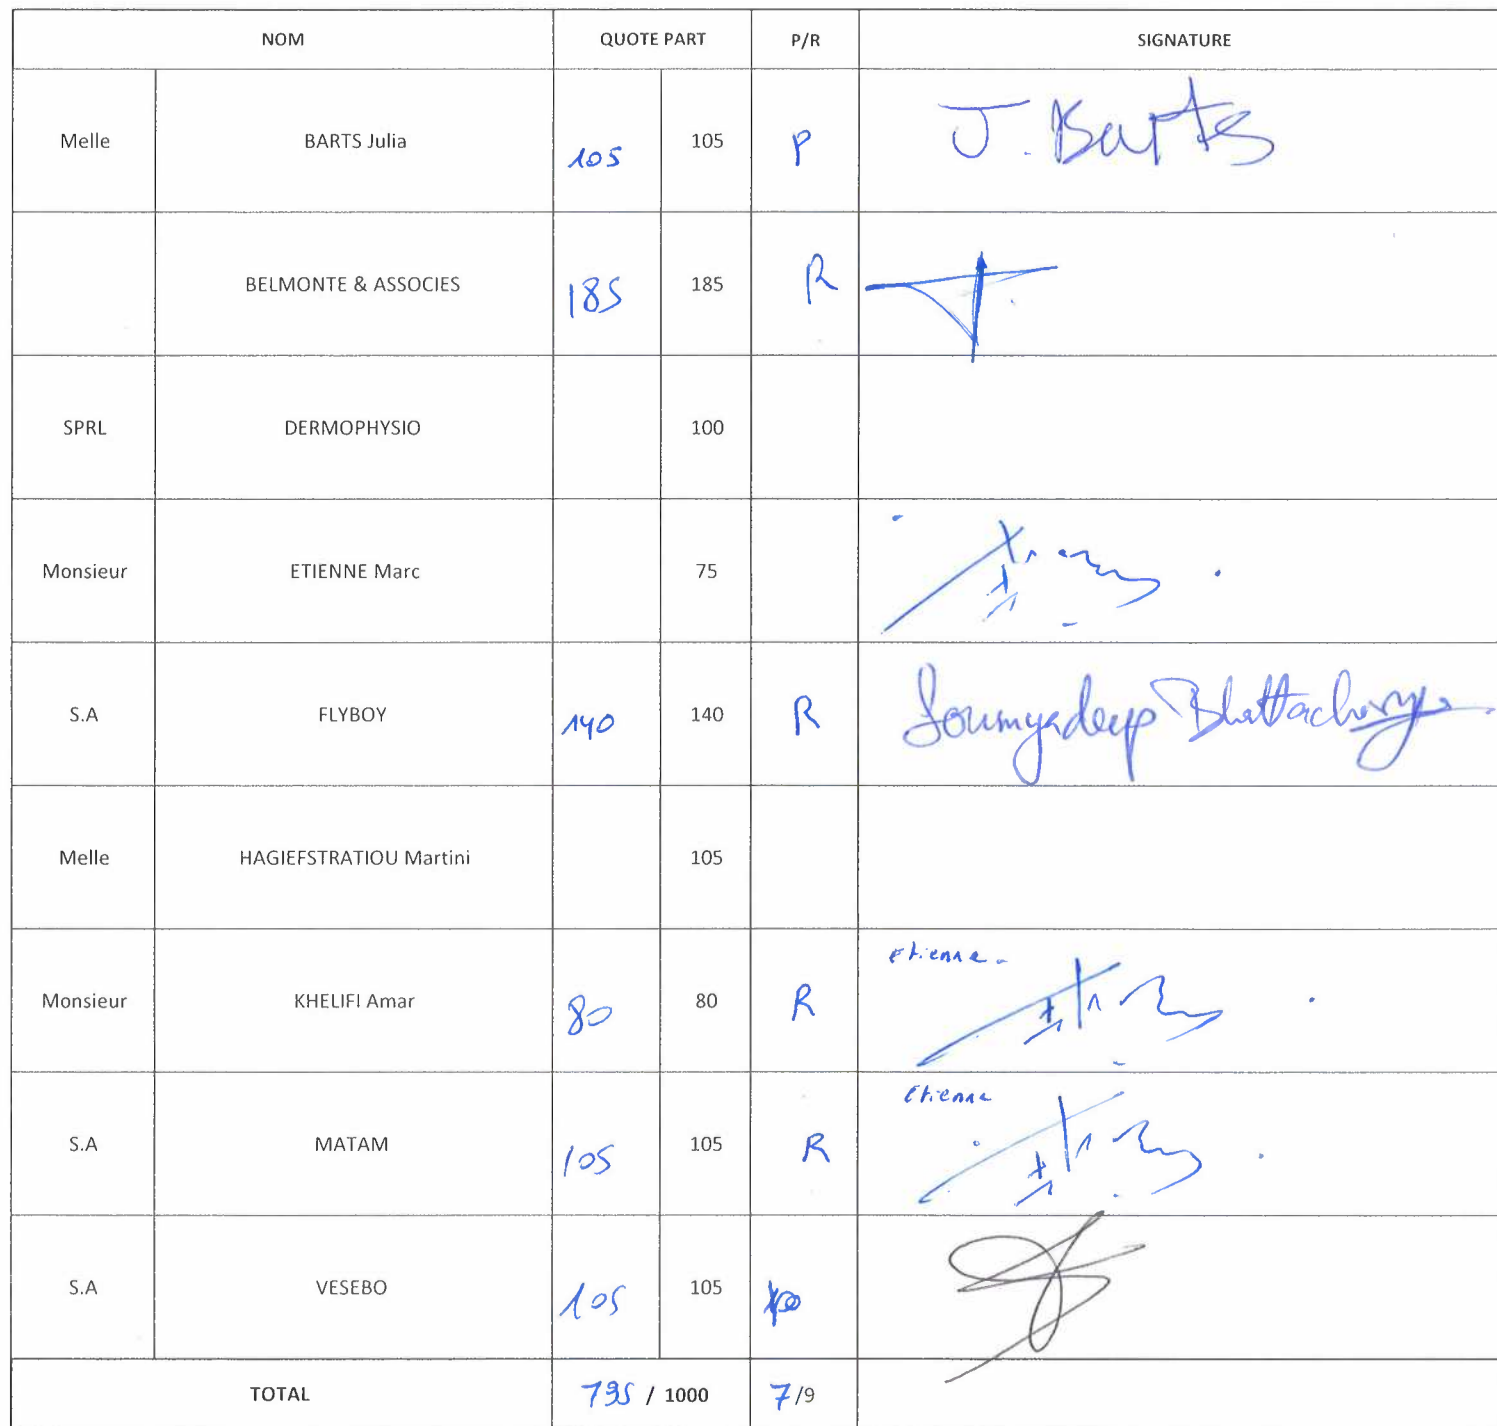 NOM QUOTE PART P/R SIGNATURE
Melle BARTS Julia 105 105 P J. Barts
BELMONTE & ASSOCIES 185 185 R
SPRL DERMOPHYSIO 100
Monsieur ETIENNE Marc 75
S.A FLYBOY 140 140 R Soumyadeep Bhattacharya
Melle HAGIEFSTRATIOU Martini 105
Etienne
Monsieur KHELIFI Amar 80 80 R
Etienne
S.A MATAM 105 105 R
S.A VESEBO 105 105
TOTAL 795 / 1000 7/9